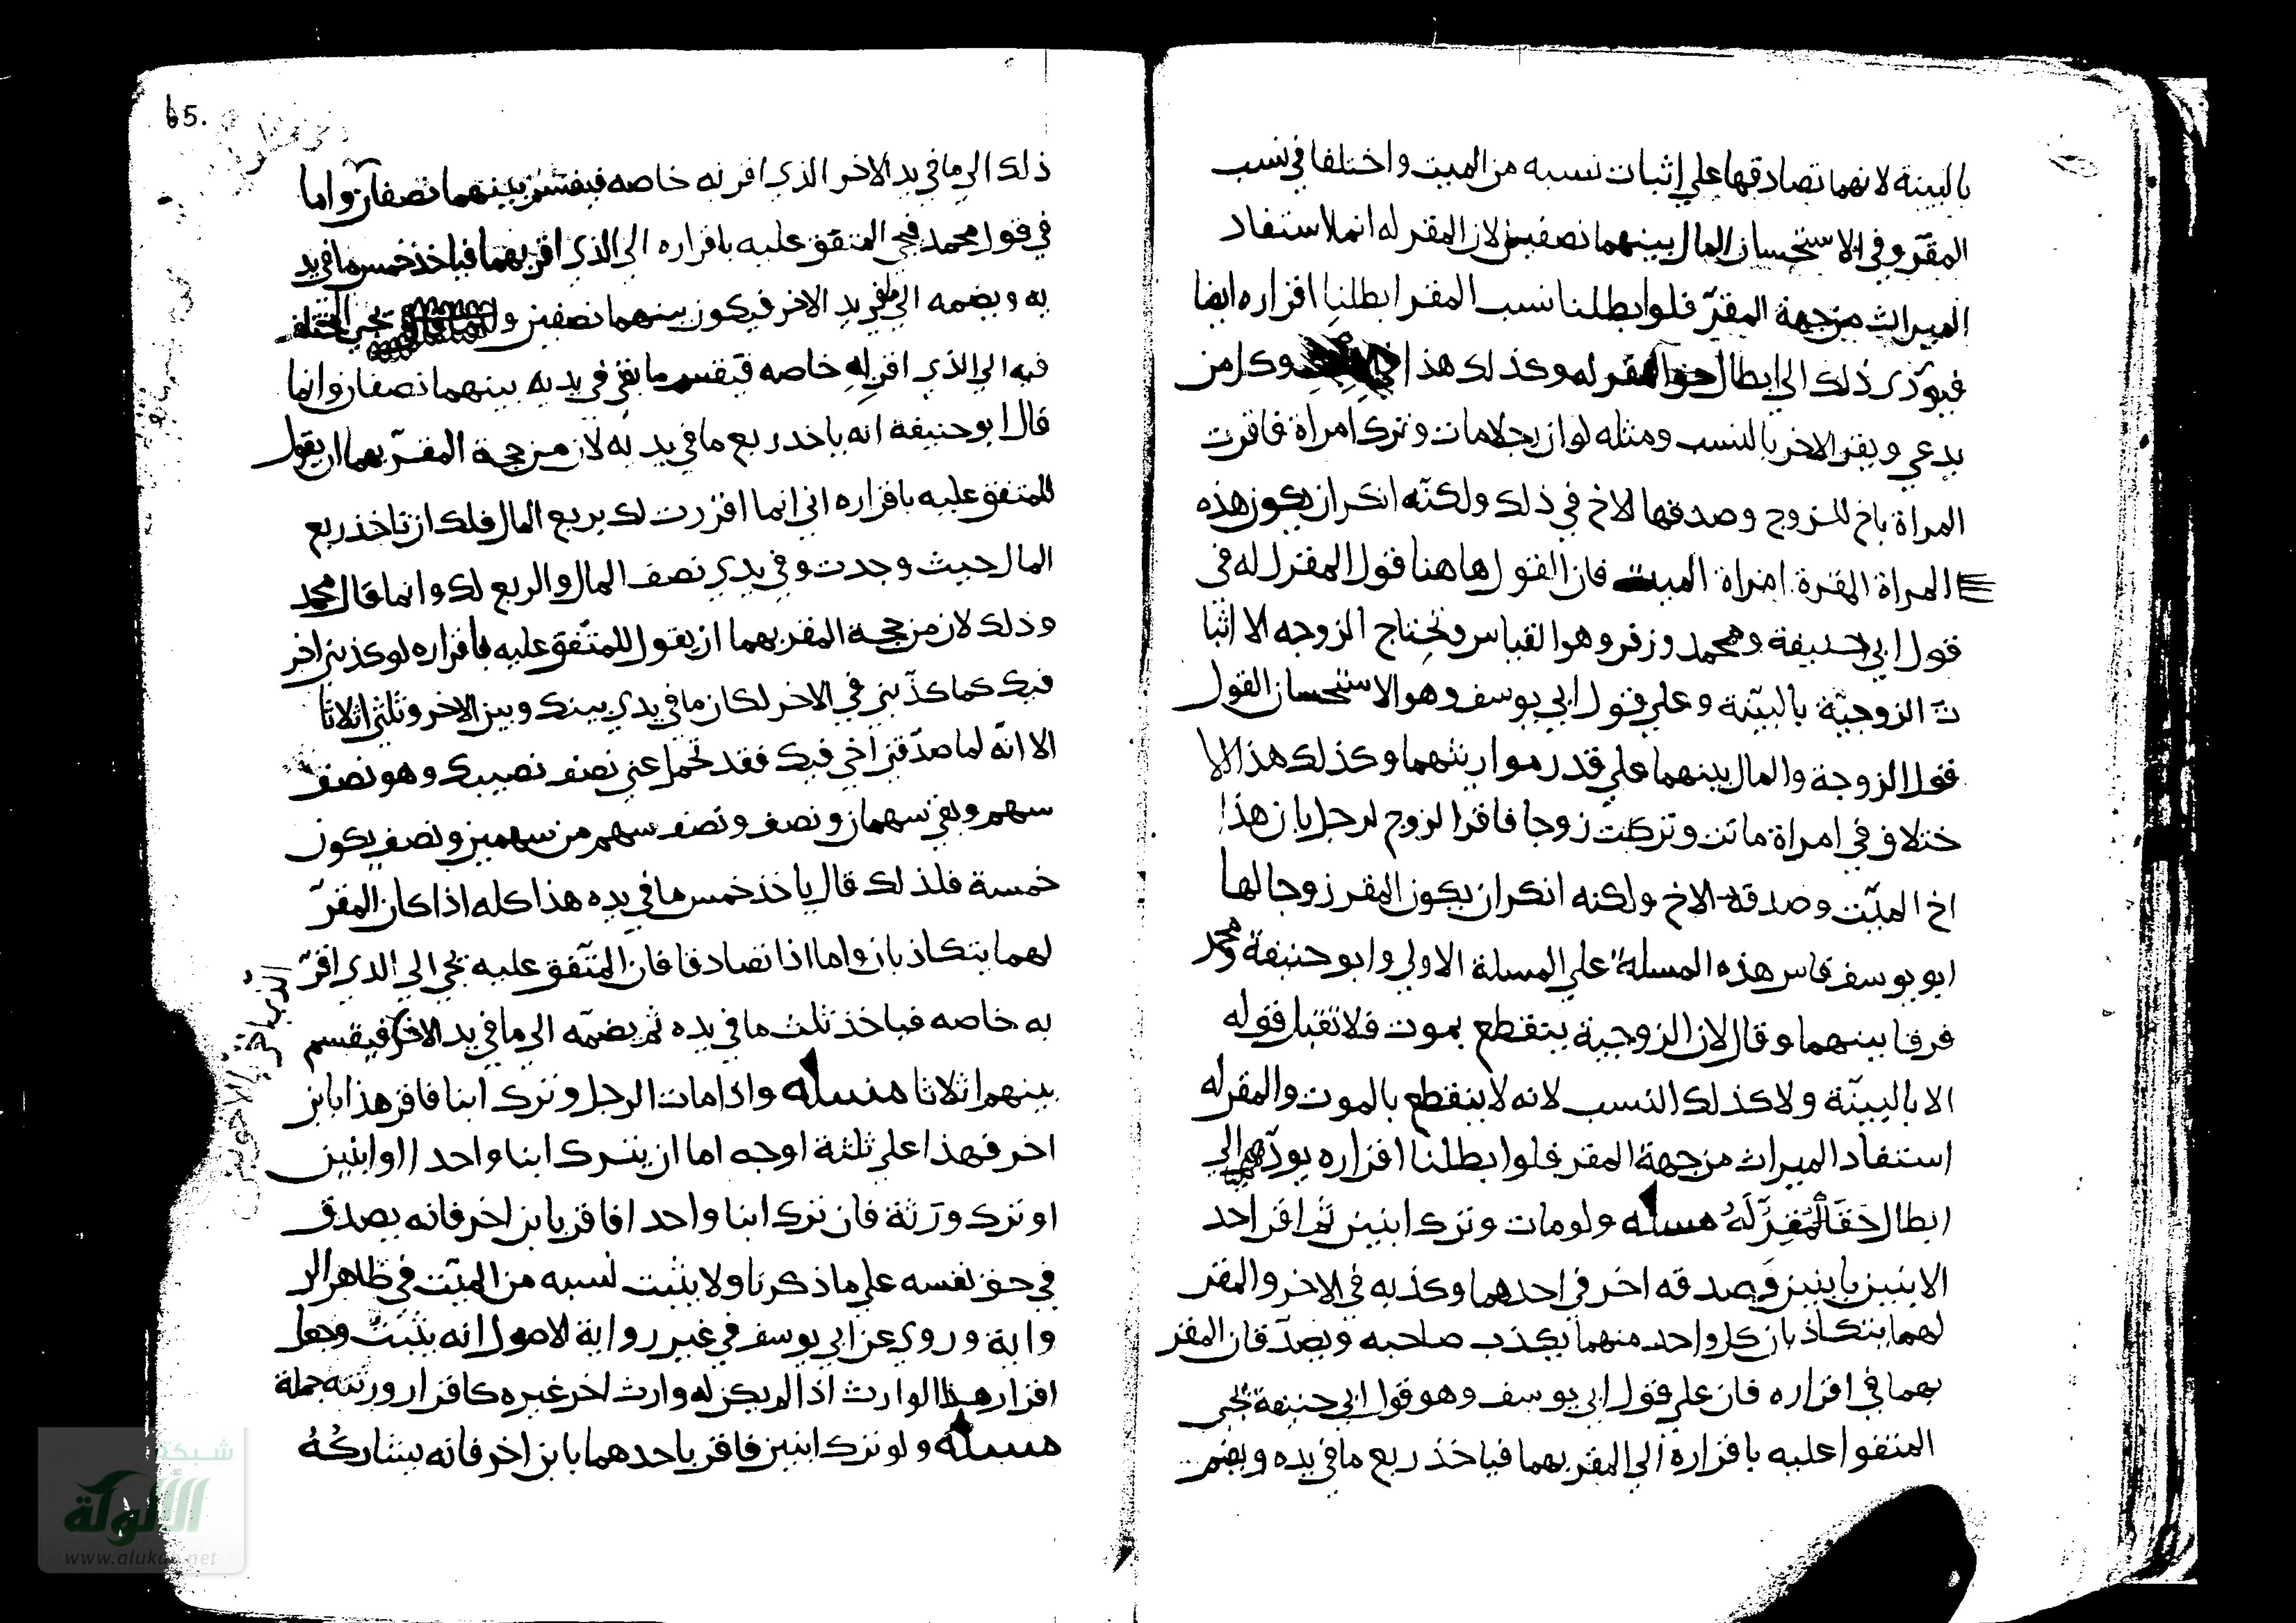 بالبينة لانهما تصادقها علي إثبات نسبه من الميت واختلفا في نسب
المقرّ وفي الاستحسان المال بينهما نصفين لان المقر له انما استفاد
الميراث من جهة المقرّ فلو ابطلنا نسب المقر ابطلنا اقراره ايضا
فيؤدّي ذلك الي ابطال حق المقر له وكذلك هذا في وكل من
يدعي ويقر الاخر بالنسب ومثله لو ان رجلا مات وترك امراة فاقرت
المراة باخ للزوج وصدقها الاخ في ذلك ولكنّه انكر ان يكون هذه
المراة المقرة امراة الميت فان القول هاهنا قول المقر له في
قول ابي حنيفة ومحمد وزفر وهو القياس وتحتاج الزوجه الا اثبا
ت الزوجيّة بالبيّنة وعلي قول ابي يوسف وهو الاستحسان القول
قول الزوجة والمال بينهما علي قدر مواريثهما وكذلك هذا الا
ختلاف في امراة ماتت وتركت زوجا فاقرا لزوج لرجل بان هذا
اخ الميّت وصدقه الاخ ولكنه انكر ان يكون المقر زوجا لها
ابو يوسف قاس هذه المسلة علي المسلة الاولي وابو حنيفة ومحمد
فرقا بينهما وقال لان الزوجية ينقطع بموت فلا تقبل قوله
الا بالبيّنة ولا كذلك النسب لانه لا ينقطع بالموت والمقر له
استفاد الميراث من جهة المقر فلو ابطلنا اقراره يودّي الي
ابطال حَقّ المُقِرِّ لَهُ مسله ولو مات وترك ابنين ثم اقر احد
الابنين بابنين وَصدقه اخر في احدهما وكذبه في الاخر والمقر
لهما يتكاذبان كل واحد منهما يكذب صاحبه ويصدّق ان المقر
بهما في اقراره فان علي قول ابي يوسف وهو قول ابي حنيفة يجي
المتفوا عليه باقراره الي المقر بهما فياخذ ربع ما في يده ويضم
65.
ذلك الي ما في يد الاخر الذي اقر به خاصه فيقسم بينهما نصفان واما
في قول محمد فيجي المتفق عليه باقراره الي الذي اقر بهما فياخذ خمس ما في يد
يه ويضمه الي ما في يد الاخر فيكون بينهما نصفين و يجي المختلف
فيه الي الذي اقر له خاصه فيقسم ما بقي في يديه بينهما نصفان وانما
قال ابو حنيفة انه ياخد ربع ما في يديه لان من حجة المقرّ بهما ان يقول
للمتفق عليه باقراره اني انما اقررت لك بربع المال فلك ان تاخذ ربع
المال حيث وجدت وفي يدي نصف المال والربع لك وانما قال محمد
وذلك لان من حجة المقر بهما ان يقول للمتّفق عليه باقراره لو كذبني اخر
فيك كما كذّبني في الاخر لكان ما في يدي بينك وبين الاخر وثلثي اثلاثا
الا انّه لما صدّقني اخي فيك فقد تحمل عني نصف نصيبك وهو نصف
سهم وبقي سهمان ونصف ونصف سهم من سهمين ونصف يكون
خمسة فلذلك قال ياخذ خمس ما في يده هذا كله اذا كان المقرّ
لهما يتكاذبان واما اذا تصادقا فان المتّفق عليه يجي الي الذي اقرّ
به خاصه فياخذ ثلث ما في يده ثم يضمّه الي ما في يد الاخر فيقسم
بينهم اثلاثا مسله واذا مات الرجل وترك ابنا فاقر هذا بابن
اخر فهذا علي ثلثة اوجه اما ان يترك ابنا واحد ا او ابنين
او ترك ورَثة فان ترك ابنا واحد افاقر بابن اخر فانه يصدق
في حق نفسه علي ما ذكرنا ولا يثبت نسبه من الميّت في ظاهر الر
واية وروي عن ابي يوسف في غير رواية الاصول انه يثبت وجعل
اقرار هذا الوارث اذا لم يكن له وارث اخر غيره كاقرار ورثته جملة
مسله ولو ترك ابنين فاقر باحدهما بابن اخر فانه يشاركُهُ
شبكة
الألوكة
www.alukah.net